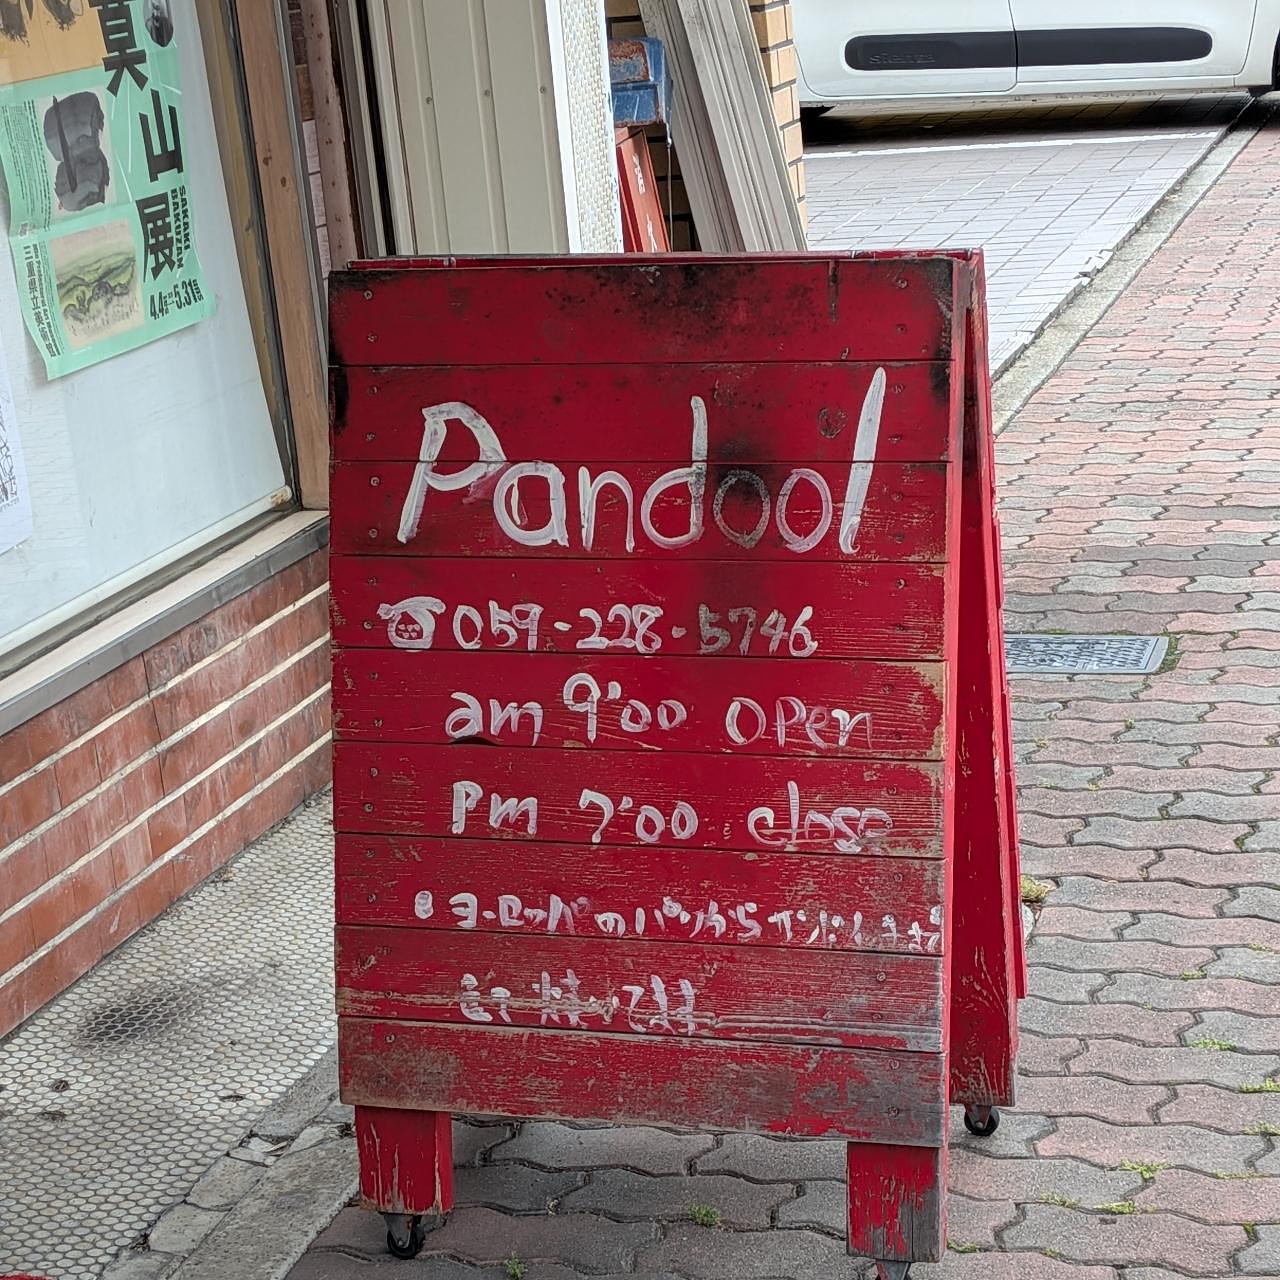 山
展
SAKAKI
HAKUZAN
4.4 5.31
三重県立美術館
sienta
Pandool
☎059-228-5746
am 9:00 open
pm 7:00 close
ヨーロッパのパンから
焼いてます